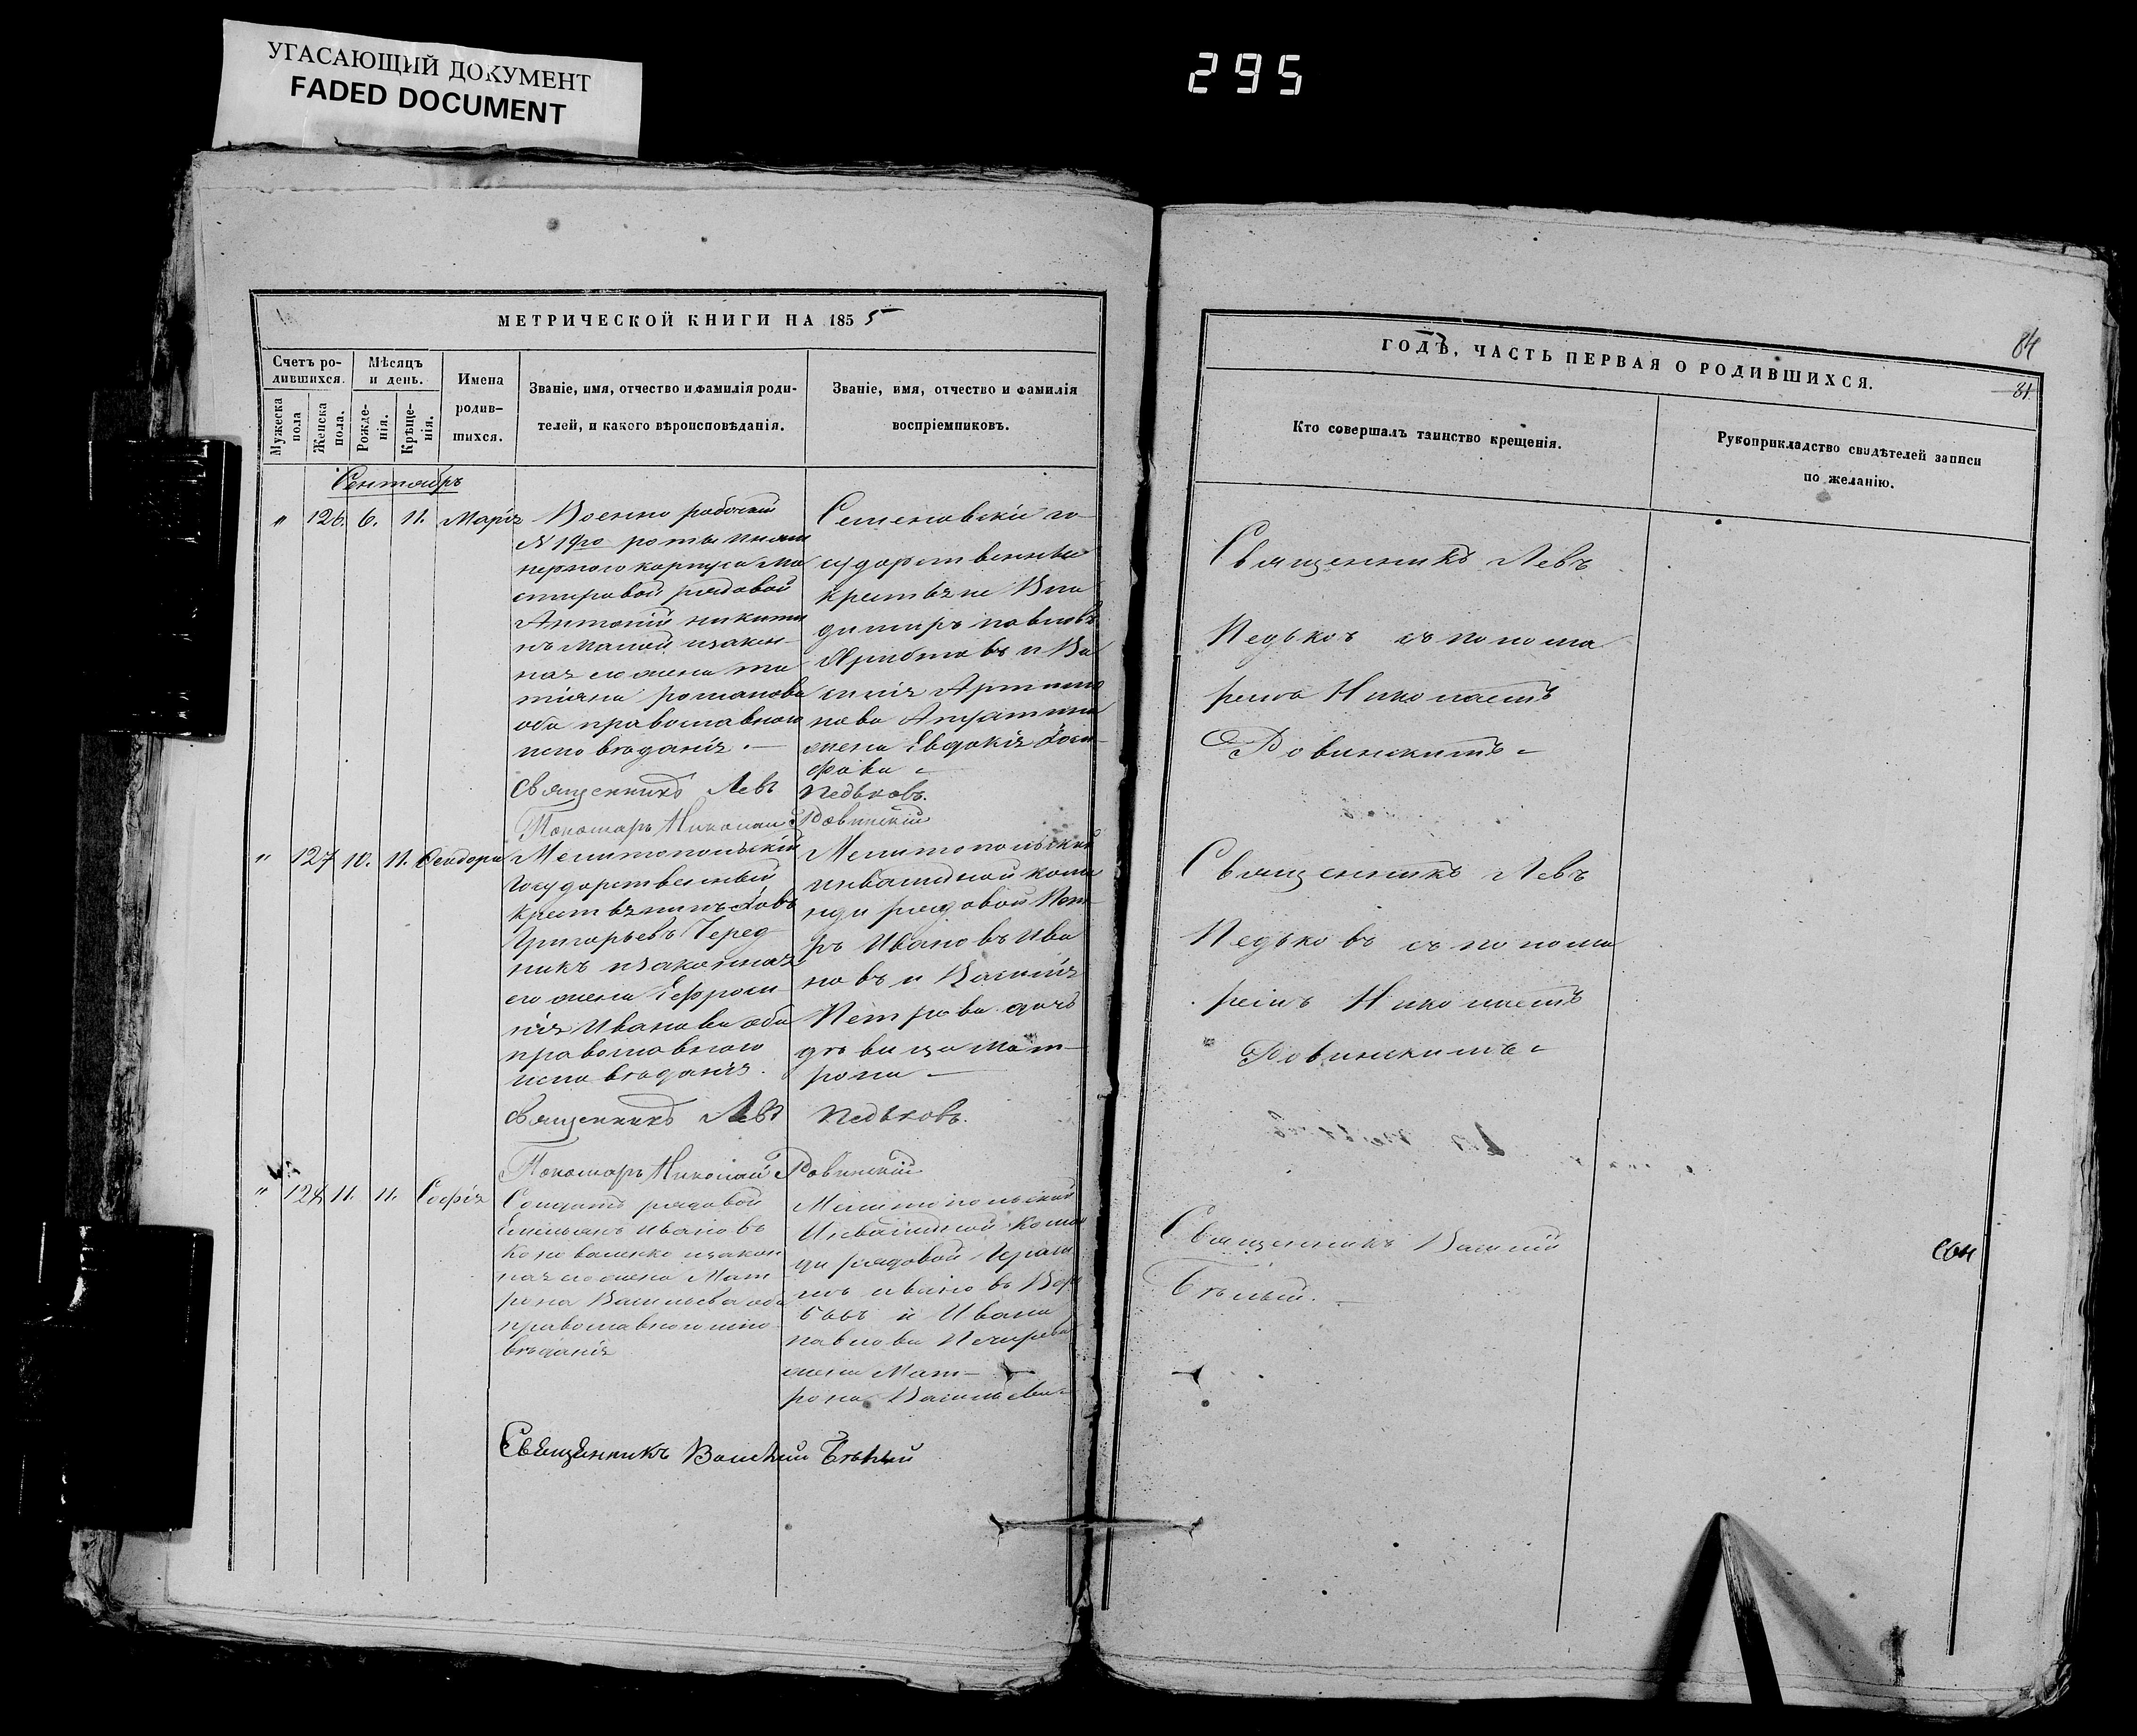 УГАСАЮЩИЙ ДОКУМЕНТ
FADED DOCUMENT
295
МЕТРИЧЕСКОЙ КНИГИ НА 1855
Счетъ ро-
дившихся.
Мѣсяцъ
и день.
Имена
родив-
шихся.
Званіе, имя, отчество и фамилія роди-
телей, и какого вѣроисповѣданія.
Званіе, имя, отчество и фамилія
воспріемниковъ.
Мужеска
пола
Женска
пола.
Рожде-
нія.
Креще-
нія.
Сентябрь
" 126. 6. 11. Марія
Военно рабочий
роты инжи
нернаго корпуса ма
стеровой рядовой
Антоній никити
нъ изакон-
ная его жена та
тіяна романова
оба православнаго
исповѣданія.
Семеновскіе го
сударственные
крестьяне Вла
димиръ павловъ
и Ва
силія
жена Евдокія Іоси-
фова
Священникъ Левъ Педьковъ.
Пономарь Николай Ровинскій
" 127 10. 11. Феодора
Мелитопольскій
государственный
крестьянинъ Іовъ
Григорьевъ Черед
никъ изаконная
его жена Ефроси
нія Иванова оба
православнаго
исповѣданія.
Мелитопольской
инвалидной кома
нды рядовой Пет
ръ Ивановъ Ива
новъ и Василія
Петрова дочь
дѣвица Мат-
рона
Священникъ Левъ Педьковъ.
Пономарь Николай Ровинскій
" 128 11. 11. Софія
Солдатъ рядовой
Емельянъ Ивановъ
Коноваленко изакон
ная его жена Мат
рона Васильева оба
православнаго испо
вѣданія
Мелитопольской
Инвалидной коман
ды рядовой
ивановъ
и Ивана
павлова
жена Мат-
рона Васильева
Священникъ Василий Бѣлый
ГОДЪ, ЧАСТЬ ПЕРВАЯ О РОДИВШИХСЯ.
84
81
Кто совершалъ таинство крещенія.
Рукоприкладство свидѣтелей записи
по желанію.
Священникъ Левъ
Педьковъ съ понома
ремъ Николаемъ
Ровинскимъ
Священникъ Левъ
Педьковъ съ понома
ремъ Николаемъ
Ровинскимъ
Священникъ Василій
Бѣлый.